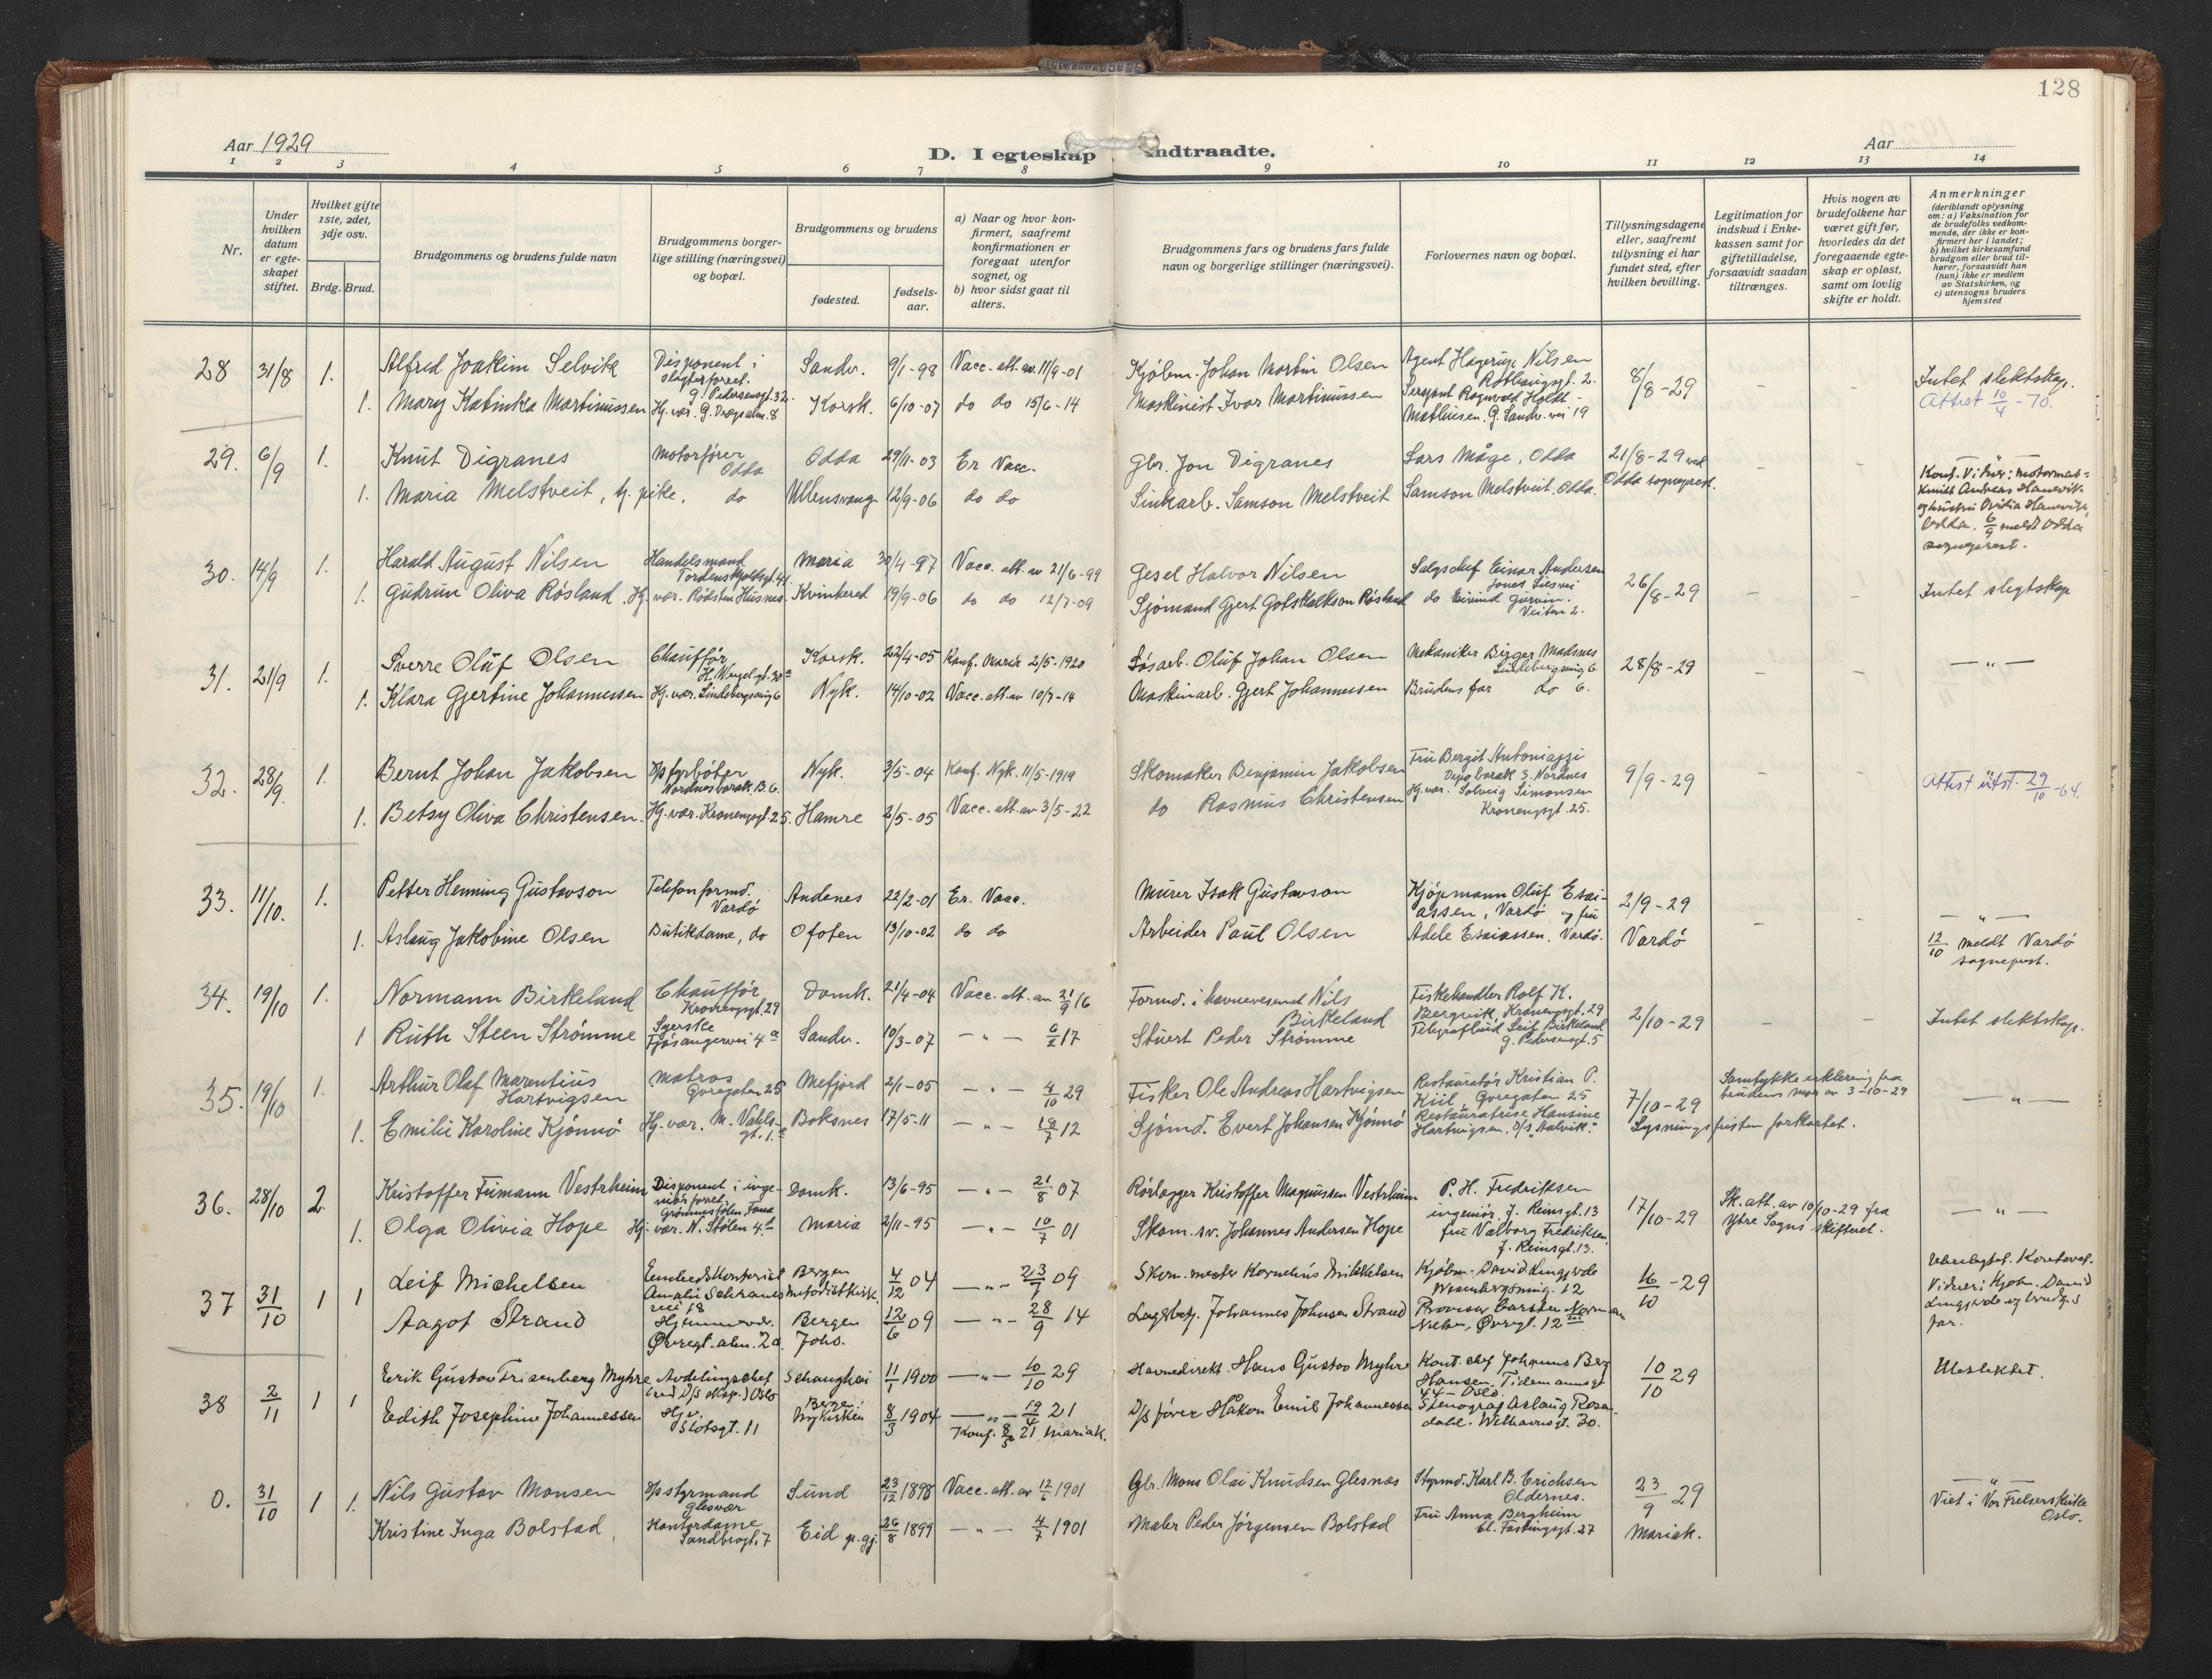 128
Aar 1929
D. I egteskap indtraadte.
Aar
1 2 3 4 5 6 7 8 9 10 11 12 13 14
Nr.
Under hvilken datum er egteskapet stiftet.
Hvilket gifte 1ste, 2det, 3dje osv.
Brdg. Brud.
Brudgommens og brudens fulde navn
Brudgommens borgerlige stilling (næringsvei) og bopæl.
Brudgommens og brudens
fødested.
fødselsaar.
a) Naar og hvor konfirmert, saafremt konfirmationen er foregaat utenfor sognet, og
b) hvor sidst gaat til alters.
Brudgommens fars og brudens fars fulde navn og borgerlige stillinger (næringsvei).
Forlovernes navn og bopæl.
Tillysningsdagene eller, saafremt tillysning ei har fundet sted, efter hvilken bevilling.
Legitimation for indskud i Enkekassen samt for giftetilladelse, forsaavidt saadan tiltrænges.
Hvis nogen av brudefolkene har været gift før, hvorledes da det foregaaende egteskap er opløst, samt om lovlig skifte er holdt.
Anmerkninger (deriblandt oplysning om: a) Vaksination for de brudefolks vedkommende, der ikke er konfirmert her i landet; b) hvilket kirkesamfund brudgom eller brud tilhører, forsaavidt han (hun) ikke er medlem av Statskirken, og c) utensogns bruders hjemsted
28 31/8 1. Alfred Joakim Selvik Disponent i slagterforret. G. Pedersensgt. 32. Sandv. 9/1-98 Vacc. att. av 11/9-01 Kjøbm. Johan Martin Olsen Agent Hagerup Nilsen 8/8-29 - - Intet slektskap.
1. Mary Katinka Martinussen Hj. vær. Korsk. 6/10-07 do do 15/6-14 Maskinist Ivar Martinussen Sersjant Ragnvald Holdt-Mathiesen. G. Sandv. vei 19 Attest 10/4-70.
29. 6/9 1. Knut Digranes Motorfører Odda Odda 29/11-03 Er Vacc. Gbr. Jon Digranes Lars Måge, Odda 21/8-29 ved Odda sogneprest. - -
1. Maria Melstveit, hj. pike. do Ullensvang 12/9-06 do do Sinkarb. Samson Melstveit Samson Melstveit. Odda.
6/9 meldt Odda sogneprest.
30. 14/9 1. Harald August Nilsen Handelsmand Tordenskjoldsgt. 41. Maria 30/4-97 Vacc. att. av 21/6-99 Gesel Halvor Nilsen Salgschef Einar Andersen Jonas Liesvei 26/8-29 - - Intet slegtskap
1. Gudrun Oliva Røsland Hj. vær. Rødsten Husnes. Kvinhered 19/9-06 do do 12/7-09 Sjømand Gjert Gotskalkson Røsland do Eivind Veiten 2.
31. 21/9 1. Sverre Oluf Olsen Chauffør H. Wergel. gt. 30a Korsk. 22/4-05 Konf. Maria 2/5-1920 Løsarb. Oluf Johan Olsen Mekaniker Birger Madsnes 6 28/8-29 - - — " —
1. Klara Gjertine Johannessen Hj. vær. 6 Nyk. 14/10-02 Vacc. att. av 10/7-14 Maskinarb. Gjert Johannessen Brudens far do 6.
32. 28/9. 1. Bernt Johan Jakobsen D/s fyrbøter Nordnesbarak B. 6. Nyk. 3/5-04 Konf. Nyk. 11/5-1919 Skomaker Benjamin Jakobsen Fru Bergit Antoniazzi barak 3. Nordnes 9/9-29 - - Attest utst. 29/10-64.
1. Betsy Oliva Christensen. Hj. vær. Kronengsgt. 25. Hamre 2/5-05 Vacc. att. av 3/5-22 do Rasmus Christensen Hj. vær. Solveig Simonsen Kronengsgt. 25.
33. 11/10. 1. Petter Henning Gustavson Telefonformd. Vardø Andenes 22/2-01 Er. Vacc. Murer Isak Gustavson Kjøpmann Oluf Esaiassen, Vardø og fru 2/9-29 - - — " —
1. Aslaug Jakobine Olsen Butikdame, do Ofoten 13/10-02 do do Arbeider Paul Olsen Adele Esaiassen. Vardø. Vardø 12/10 meldt Vardø sogneprest.
34. 19/10 1. Normann Birkeland Chauffør Kronengsgt. 29 Domk. 21/4-04 Vacc. att. av 21/9 16 Formd. i havnevesenet Nils Birkeland Fiskehandler Rolf K. Bergvik, Kronengsgt. 29 2/10-29 - - Intet slektskap.
1 Ruth Steen Strømme Syerske Fjøsangervei 4a Sandv. 10/3-07 — " — 6/2 17 Stuert Peder Strømme Leif Birkeland G. Pedersensgt. 5
35. 19/10 1. Arthur Olaf Marentius Hartvigsen Matros Goregaten 25 Mefjord 2/1-05 — " — 4/10 29 Fisker Ole Andreas Hartvigsen Restauratør Kristian P. Kiil, Goregaten 25 7/10-29 Samtykkeerklæring fra brudens mor av 3-10-29 — " —
1. Emilie Karoline Kjønnø Hj. vær. Boksnes 17/5-11 — " — 12 Sjømd. Evert Johansen Kjønnø Restauratrise Hansine Hartvigsen. D/s "Aalvik". Lysningsfristen forkortet.
36. 28/10 2 Kristoffer Fumann Vestrheim Disponent i ingeniørforret. Grønnestølen, Fana Domk. 13/6-95 — " — 21/8 07 Rørlægger Kristoffer Magnussen Vestrheim P. H. Fredriksen ingeniør. J. Reinsgt. 13 17/10-29 Sk. att. av 10/10-29 fra Ytre Sogns skifteret. — " —
1. Olga Olivia Hope Hj. vær. N. Stølen 4.b Maria 2/11-95 — " — 10/7 01 Skom. sv. Johannes Andersen Hope fru Valborg Fredriksen J. Reinsgt. 13.
37 31/10 1 1 Leif Michelsen Amalie Schrams vei 18 Bergen Metodistkirk. 4/12 04 — " — 23/7 09 Skom. mester Kornelius Mikkelsen Kjøbm. David Lingjerde 12 16/10-29
Aagot Strand Øvregt. alm. 2a Bergen Joh. 12/6 09 — " — 28/9 14 Johannes Johnsen Strand Provisor Carsten Norman Nielsen, Øvregt. 12
38 2/11 1 1 Erik Gustav Frisenberg Myhre Avdelingschef Oslo Schanghai 11/1 1900 — " — 10/10 29 Havnedirekt. Hans Gustav Myhre Kont. chef Johannes Berg Hansen. Tidemannsgt 44 - Oslo. 10/10 29 Ubeslektet.
Edith Josephine Johannessen Hj. v. Slotsgt. 11 Bergen Nykirken 8/3 1904 — " — 19/4 21 D/s fører Håkon Emil Johannessen Stenograf Aslaug Rosendahl. Welhavnsgt. 30.
Konf. 8/5 21 Mariak.
0. 31/10 1 1. Nils Gustav Monsen D/s styrmand Glesvær Sund 23/12 1898 Vacc. att. av 12/6 1901 Gbr. Mons Olai Knudsen Glesnæs Styrmd. Karl B. Erichsen Oldernes. 23/9 29 — " —
Kristine Inga Bolstad Kontordame Sandbrogt. 7 Eid p. gj. 26/8 1899 — " — 4/7 1901 Maler Peder Jørgensen Bolstad Fru Anna Bergheim Cl. Fastingsgt. 27 Mariak. Viet i Vor Frelsers kirke Oslo.